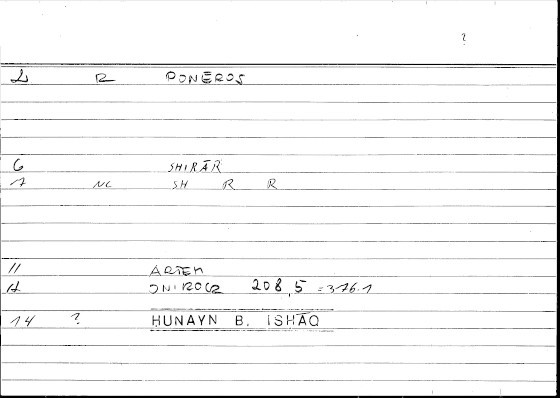 ?
2 R PONĒROS
6 SHIRĀR
1 NC SH R R
11 ARTEM
12 ONIROCR 208,5 = 376.1
14 ? HUNAYN B. ISḤĀQ